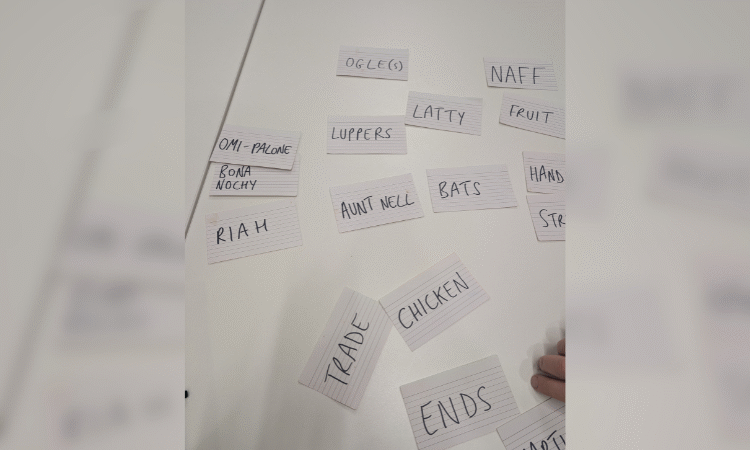 OGLE(S)
NAFF
LATTY
FRUIT
LUPPERS
OMI-PALONE
BONA
NOCHY
HAND
AUNT NELL
BATS
STR
RIAH
CHICKEN
TRADE
ENDS